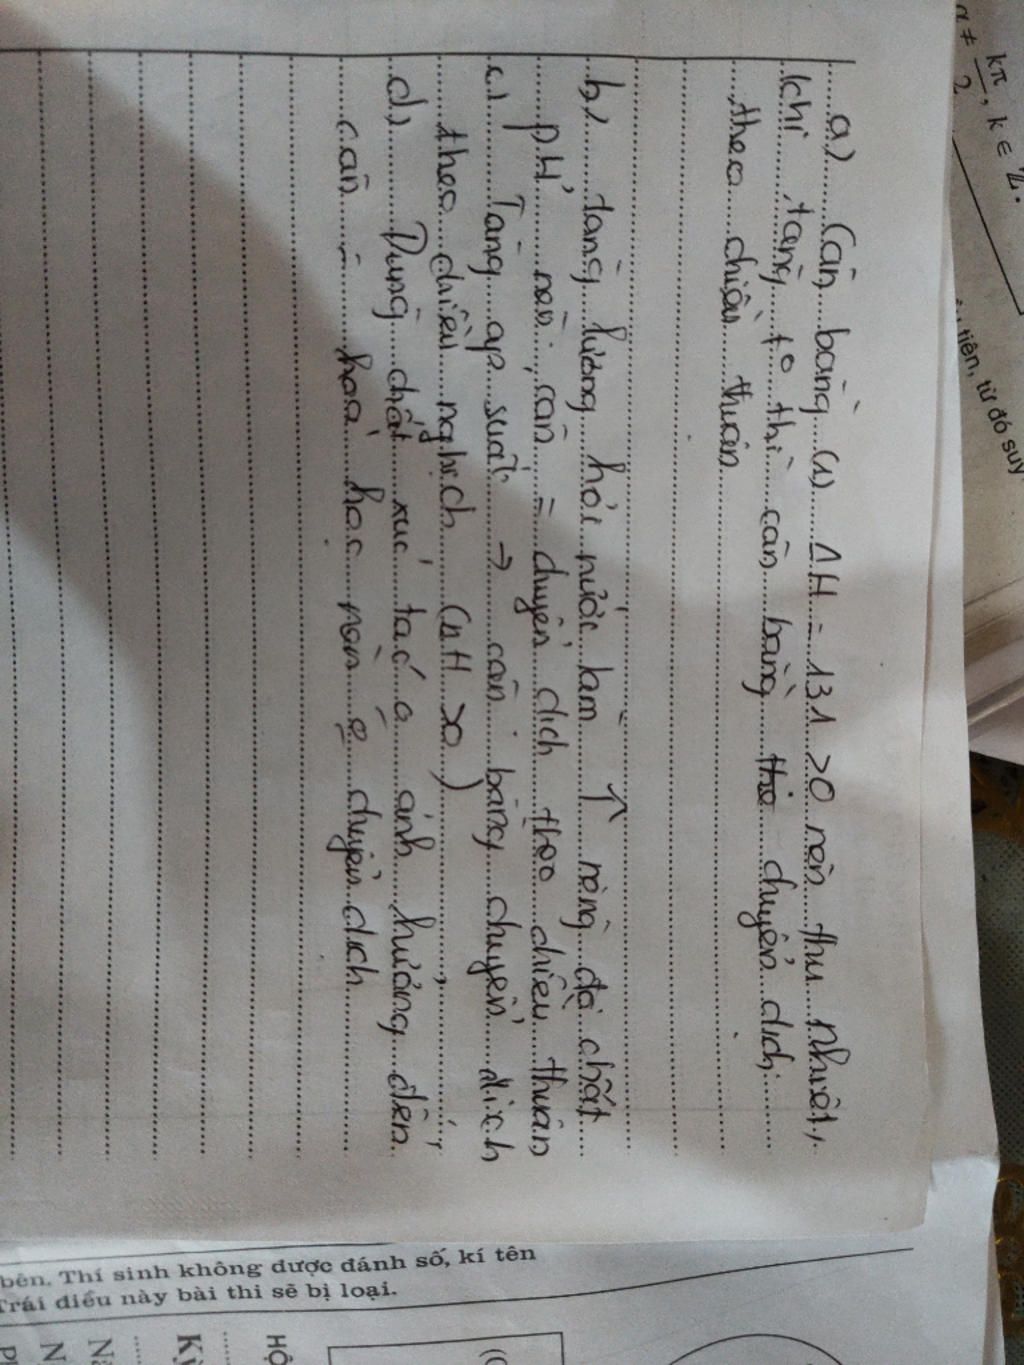 a) Cân bằng (1) ΔH = 131 > 0 nên thu nhiệt,
khi tăng t° thì cân bằng chuyển dịch
theo chiều thuận
b) tăng lượng hơi nước làm ↑ nồng độ chất
pứ nên cân = chuyển dịch theo chiều thuận
c) Tăng áp suất → cân bằng chuyển dịch
theo chiều nghịch (ΔH >0)
d) Dùng chất xúc tác o ảnh hưởng đến
cân = hoá học nên o chuyển dịch
α ≠ kπ/2, k ∈ Z.
tiên, từ đó suy
bên. Thí sinh không được đánh số, kí tên
Trái điều này bài thi sẽ bị loại.
HỘ
Kỳ
N